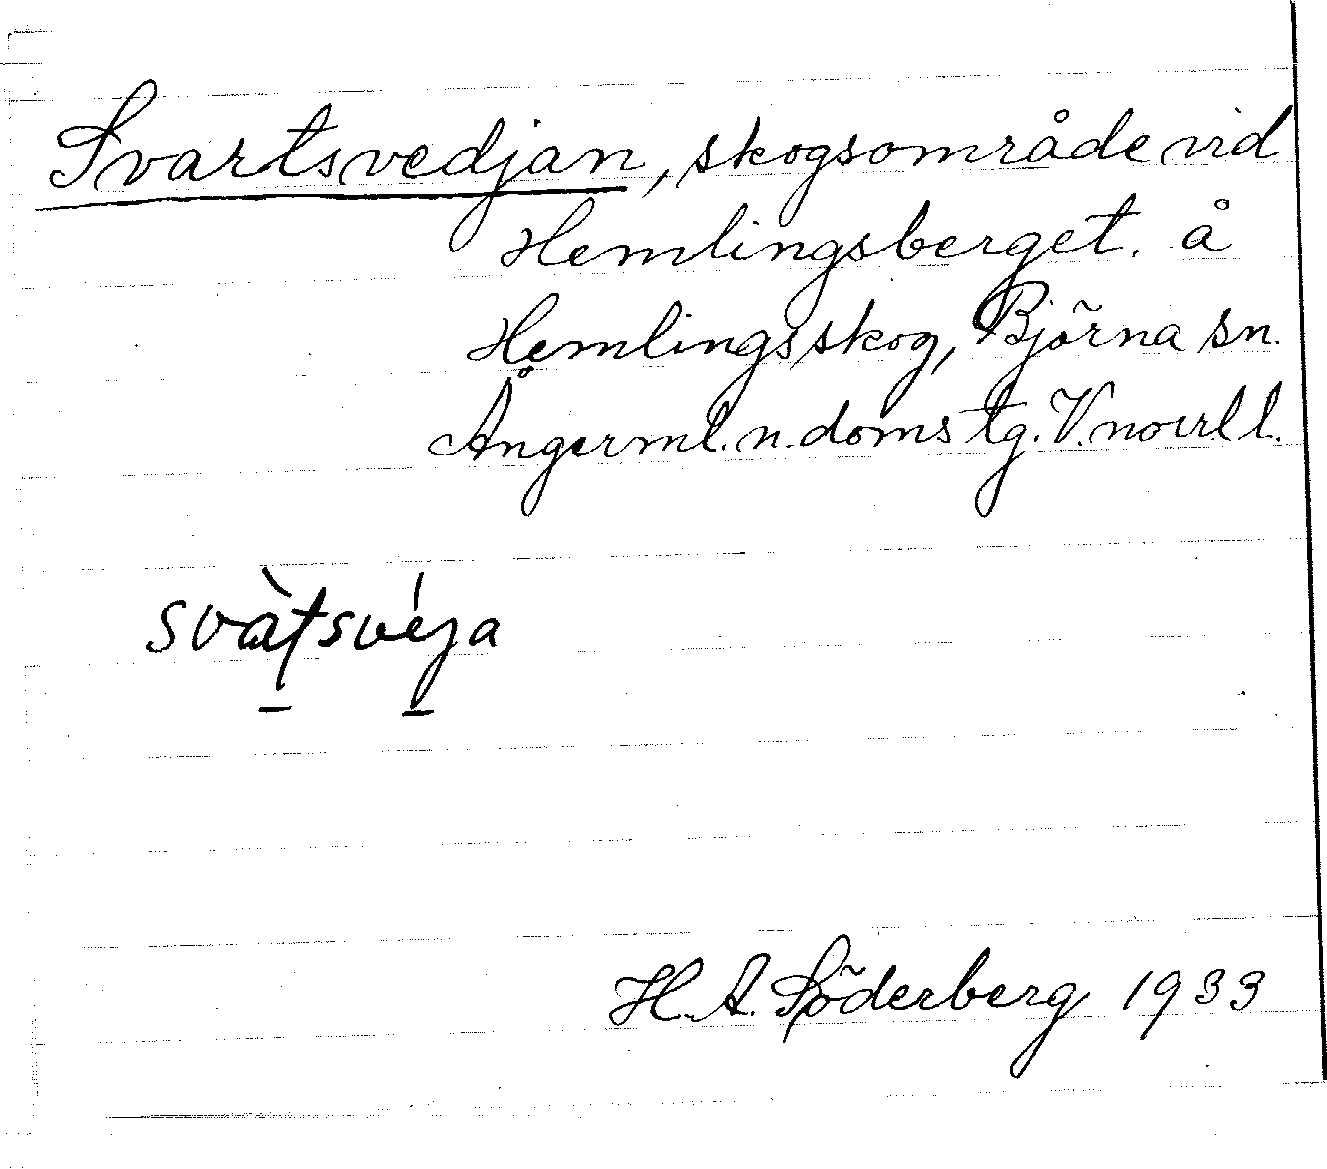 Svartsvedjan, skogsområde vid
Hemlingsberget. å
Hemlingsskog, Björna sn.
Ångerml. n. domstg. V. norrl l.
svàtsvéja
H. A. Söderberg 1933